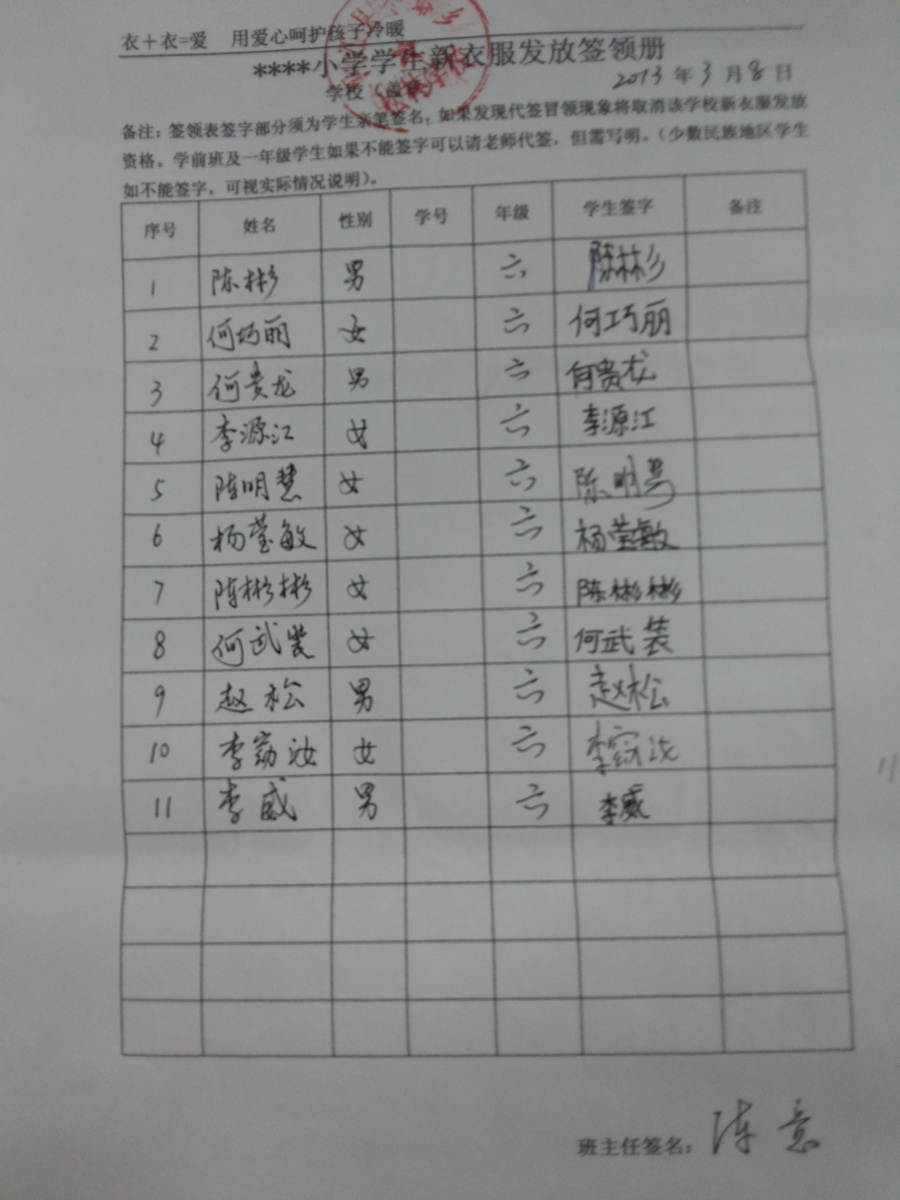 衣+衣=爱 用爱心呵护孩子冷暖
****小学学生新衣服发放签领册
学校(盖章) 2013年3月8日
备注:签领表签字部分须为学生亲笔签名,如果发现代签冒领现象将取消该学校新衣服发放
资格。学前班及一年级学生如果不能签字可以请老师代签,但需写明。(少数民族地区学生
如不能签字,可视实际情况说明)。
序号 姓名 性别 学号 年级 学生签字 备注
1 陈彬 男 六 陈彬
2 何巧丽 女 六 何巧丽
3 何贵龙 男 六 何贵龙
4 李源江 女 六 李源江
5 陈明慧 女 六 陈明
6 杨莹敏 女 六 杨莹敏
7 陈彬彬 女 六 陈彬彬
8 何武装 女 六 何武装
9 赵松 男 六 赵松
10 李 汝 女 六 李 汝
11 李威 男 六 李威
班主任签名: 陈意